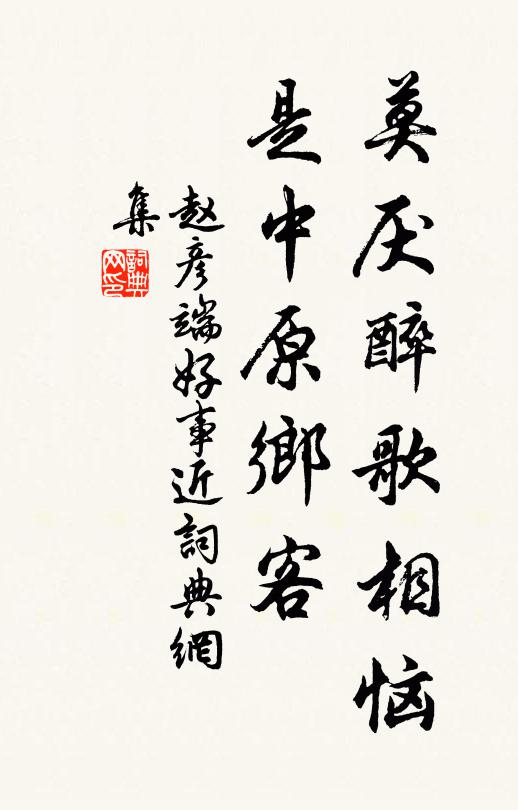 莫厌醉歌相恼
是中原鄉客
赵彦端好事近詞典網
集
詞典
网印